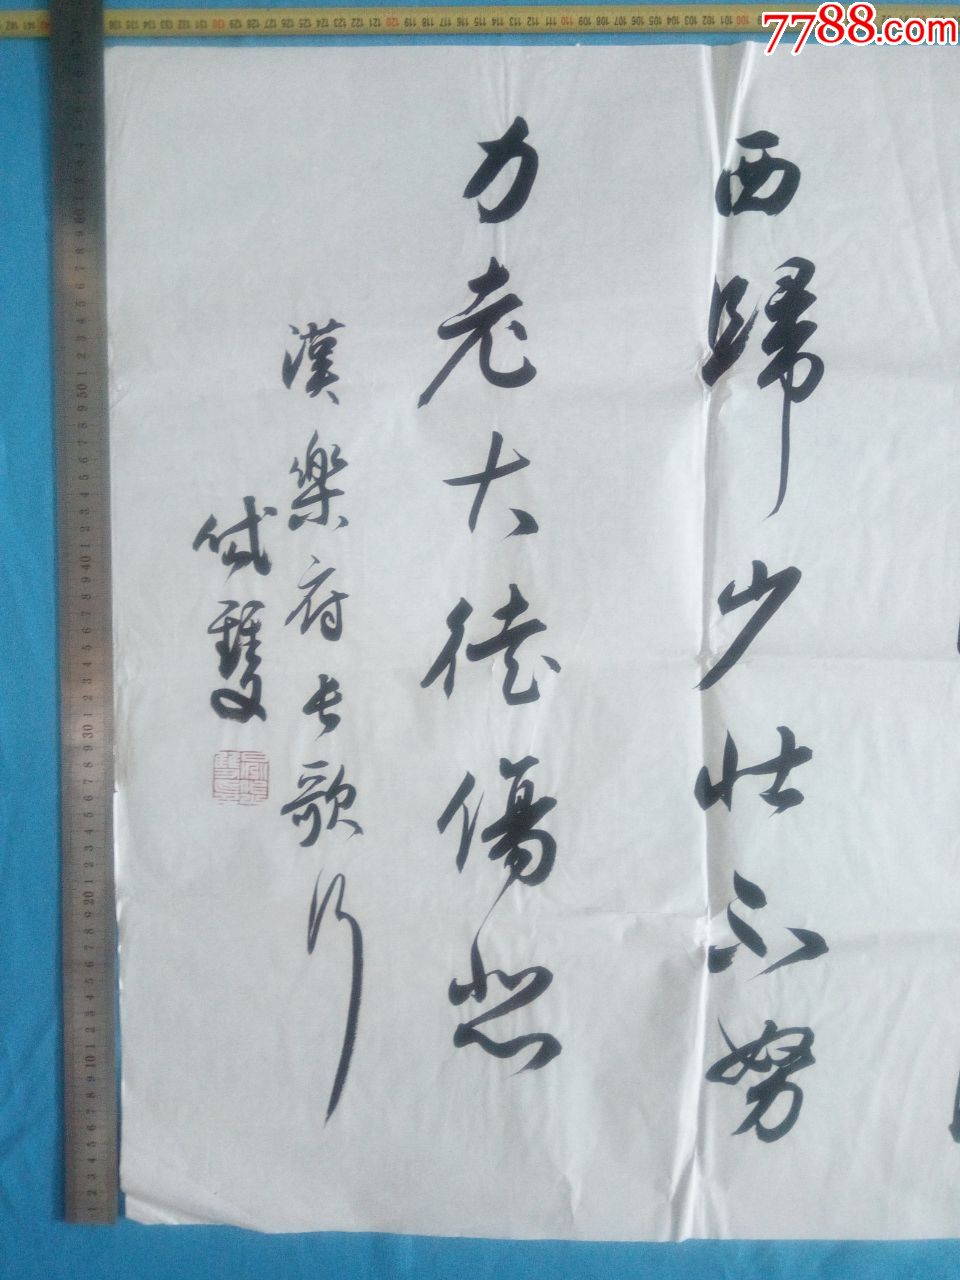 7788.com
西歸少壮不努
力老大徒傷悲
漢樂府長歌行